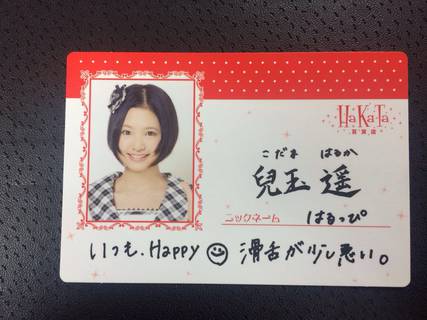 HaKaTa
百貨店
こだま はるか
兒玉 遥
ニックネーム はるっぴ
いつも、Happy 滑舌が少し悪い。